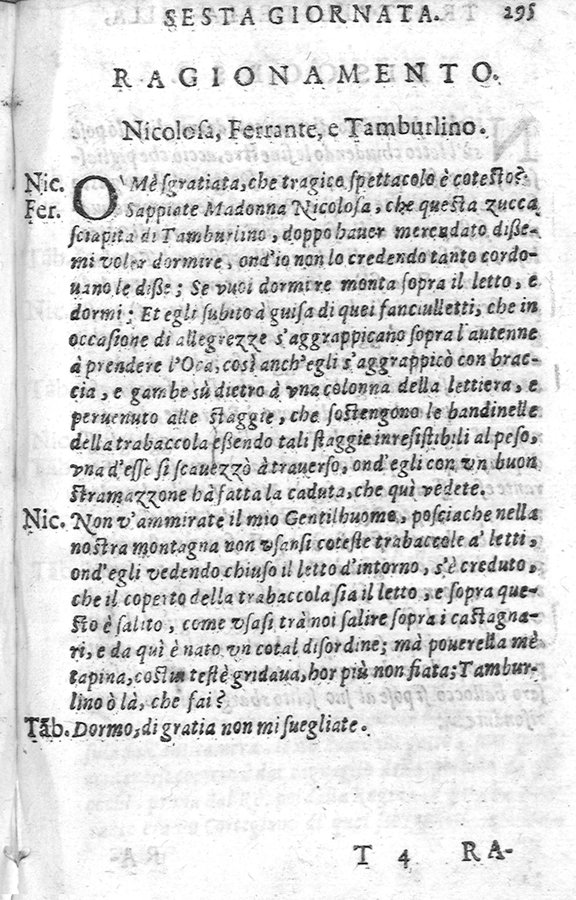 SESTA GIORNATA. 295
RAGIONAMENTO.
Nicolosa, Ferrante, e Tamburlino.
Nic. O' Mè sgratiata, che tragico spettacolo è cotesto?
Fer. Sappiate Madonna Nicolosa, che questa zucca
sciapita di Tamburlino, doppo hauer merendato disse-
mi voler dormire, ond'io non lo credendo tanto cordo-
uano le disse; Se vuoi dormire monta sopra il letto, e
dormi; Et egli subito à guisa di quei fanciulletti, che in
occasione di allegrezze s'aggrappicano sopra l'antenne
à prendere l'Oca, così anch'egli s'aggrappicò con brac-
cia, e gambe sù dietro à vna colonna della lettiera, e
peruenuto alle staggie, che sostengono le bandinelle
della trabaccola essendo tali staggie inresistibili al peso,
vna d'esse si scauezzò à trauerso, ond'egli con vn buon
stramazzone hà fatta la caduta, che quì vedete.
Nic. Non v'ammirate il mio Gentilhuomo, posciache nella
nostra montagna non vsansi coteste trabaccole a' letti,
ond'egli vedendo chiuso il letto d'intorno, s'è creduto,
che il coperto della trabaccola sia il letto, e sopra que-
sto è salito, come vsasi trà noi salire sopra i castagna-
ri, e da quì è nato vn cotal disordine; mà pouerella mè
tapina, costui testè gridaua, hor più non fiata; Tambur-
lino ò là, che fai?
Tāb. Dormo, di gratia non mi suegliate.
T 4 RA-